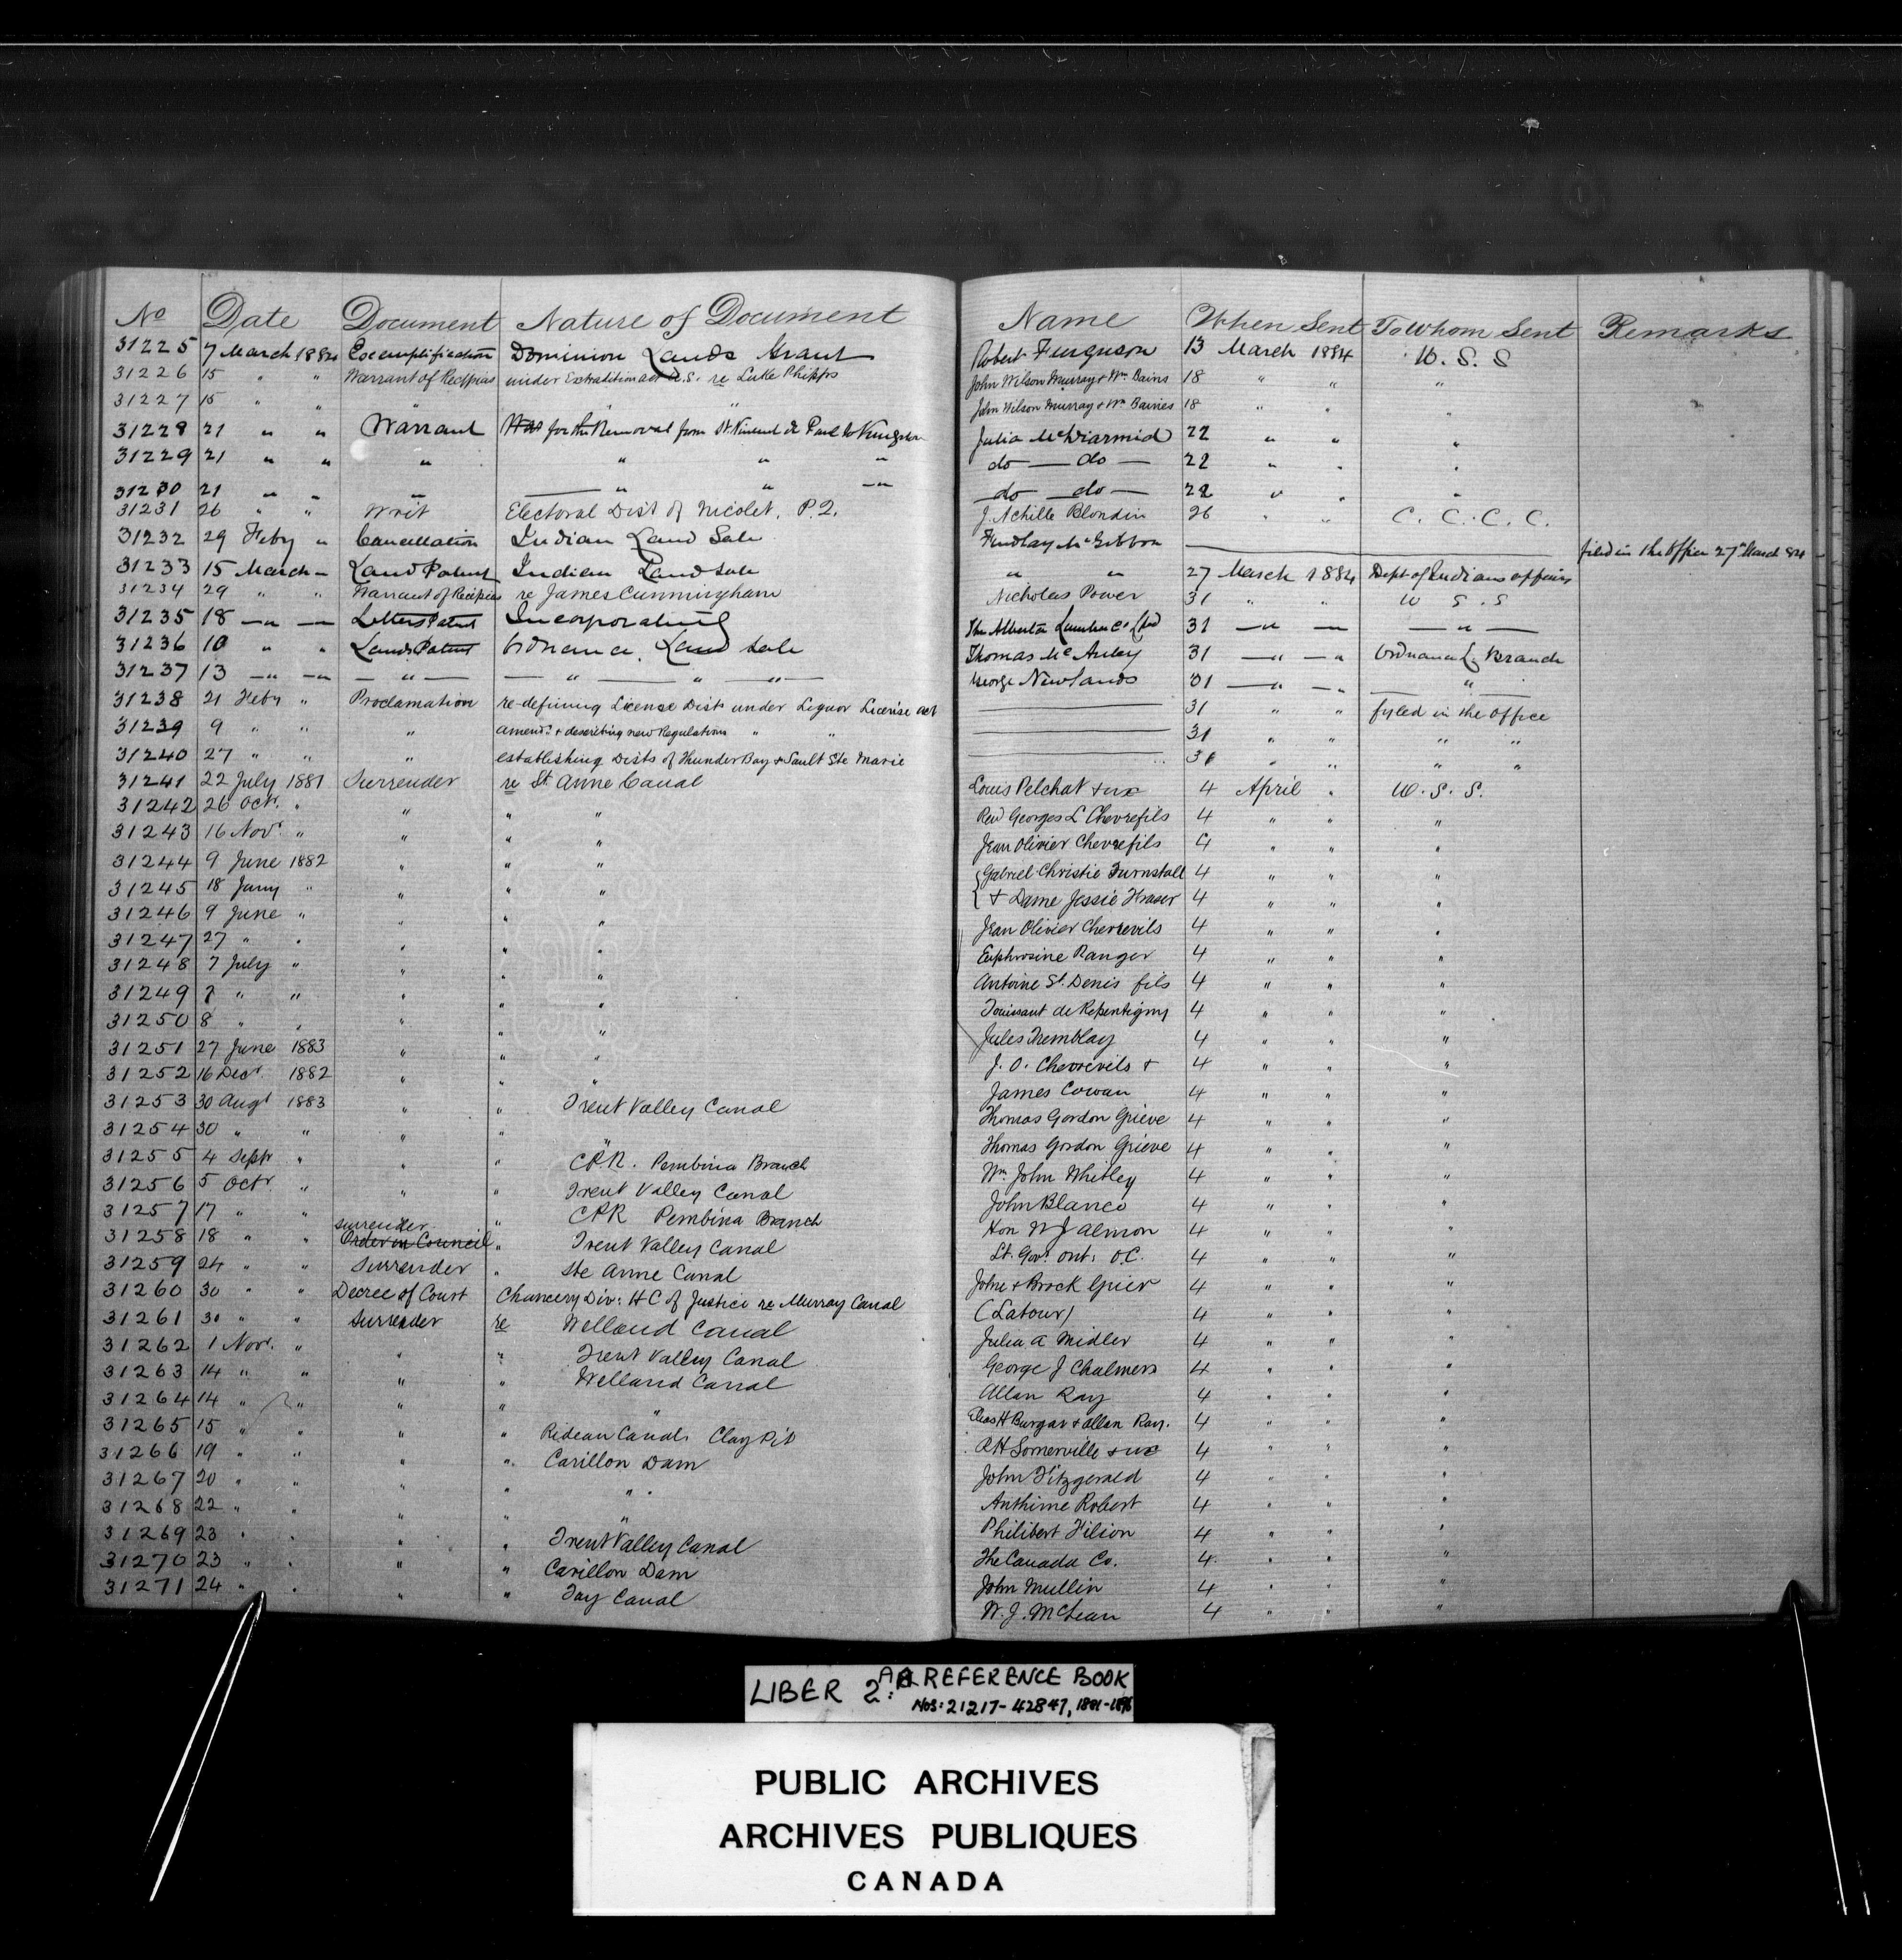 No Date Document Nature of Document Name When Sent To Whom Sent Remarks
31225 7 March 1884 Exemplification Dominion Lands Grant Robert Ferguson 13 March 1884 U. S. S
31226 15 " " Warrant of Recipias under Extradition act U.S. re Luke Phipps John Wilson Murray & Wm Bains 18 " " "
31227 15 " " " " " John Wilson Murray & Wm Baines 18 " " "
31228 21 " " Warrant for the Removal from St. Vincent de Paul to Kingston Julia McDiarmid 22 " " "
31229 21 " " " " " " do — do — 22 " " "
31230 21 " " " " " " do — do — 22 " " "
31231 26 " " Writ Electoral Dist of Nicolet. P.Q. J. Achille Blondin 26 " " C. C. C. C.
31232 29 Feby " Cancellation Indian Land Sale Findlay McGibbon filed in the office 27th March 84
31233 15 March " Land Patent Indian Land Sale " " 27 March 1884 Dept of Indians affairs
31234 29 " " Warrant of Recipias re James Cunningham Nicholas Power 31 " " U S. S
31235 18 " " Letters Patent Incorporating The Alberta Lumber Co Ltd 31 " " "
31236 10 " " Lands Patent Ordnance Land Sale Thomas McAuley 31 " " Ordnance L Branch
31237 13 " " " " " " George Newlands 31 " " "
31238 21 Feby " Proclamation re-defining License Dists under Liquor License act 31 " " fyled in the office
31239 9 " " " amendg & describing new Regulations " " 31 " " " "
31240 27 " " " establishing Dists of Thunder Bay & Sault Ste Marie 31 " " " "
31241 22 July 1881 Surrender re St. Anne Canal Louis Pelchat & ux 4 April " U. S. S.
31242 26 Octr. " " " " Revd Georges L Chevrefils 4 " " "
31243 16 Novr " " " " Jean Olivier Chevrefils 4 " " "
31244 9 June 1882 " " " {Gabriel Christie Turnstall 4 " " "
31245 18 Jany " " " " { & Dame Jessie Fraser 4 " " "
31246 9 June " " " " Jean Olivier Chevrevils 4 " " "
31247 27 " " " " " Euphrosine Ranger 4 " " "
31248 7 July " " " " Antoine St. Denis fils 4 " " "
31249 7 " " " " " Touissant de Repentigny 4 " " "
31250 8 " " " " " Jules Tremblay 4 " " "
31251 27 June 1883 " " " J. O. Chevrevils & 4 " " "
31252 16 Decr. 1882 " " " James Cowan 4 " " "
31253 30 Augt 1883 " " Trent Valley Canal Thomas Gordon Grieve 4 " " "
31254 30 " " " " " Thomas Gordon Grieve 4 " " "
31255 4 Septr " " " C.P.R. Pembina Branch Wm John Whitley 4 " " "
31256 5 Octr " " " Trent Valley Canal John Blanco 4 " " "
31257 17 " " " C P R Pembina Branch Hon W J Almon 4 " " "
31258 18 " " surrender Order in Council " Trent Valley Canal Lt. Govr Ont: O.C. 4 " " "
31259 24 " " Surrender " Ste Anne Canal John & Brock Grier 4 " " "
31260 30 " " Decree of Court Chancery Div: H C of Justice re Murray Canal (Latour) 4 " " "
31261 30 " " Surrender re Welland Canal Julia A Midler 4 " " "
31262 1 Nov. " " " Trent Valley Canal George J Chalmers 4 " " "
31263 14 " " " " Welland Canal Allan Ray 4 " " "
31264 14 " " " " " Elias H Burgar & Allan Ray. 4 " " "
31265 15 " " " " Rideau Canal. Clay Pit R H Somerville & ux 4 " " "
31266 19 " " " " Carillon Dam John Fitzgerald 4 " " "
31267 20 " " " " " Anthime Robert 4 " " "
31268 22 " " " " " Philibert Filion 4 " " "
31269 23 " " " " Trent Valley Canal The Canada Co. 4 " " "
31270 23 " " " " Carillon Dam John Mullin 4 " " "
31271 24 " " " " Tay Canal W. J. McLean 4 " " "
LIBER 2: REFERENCE BOOK
Nos: 21217-42847, 1881-1896
PUBLIC ARCHIVES
ARCHIVES PUBLIQUES
CANADA